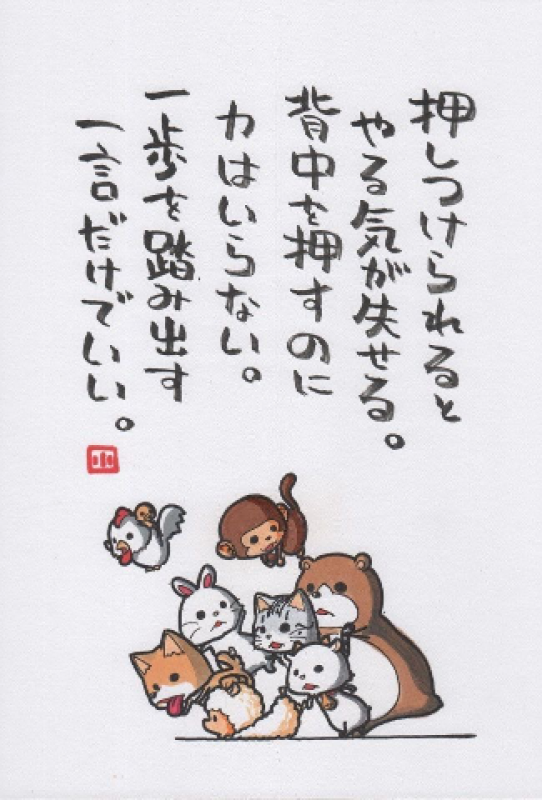 押しつけられると
やる気が失せる。
背中を押すのに
力はいらない。
一歩を踏み出す
一言だけでいい。